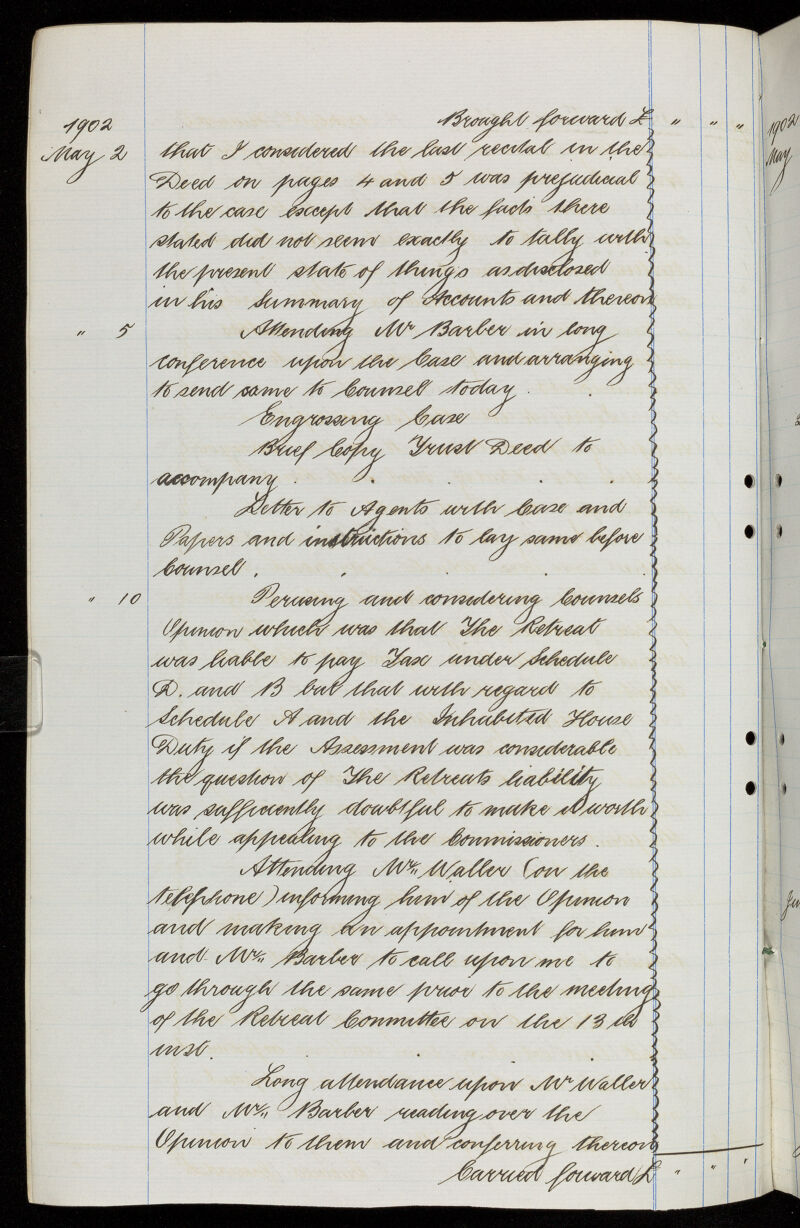 1902 Brought forward £ " " "
May 2 that I considered the last recital in the
Deed on pages 4 and 5 was prejudicial
to the case except that the facts there
stated did not seem exactly to tally with
the present state of things as disclosed
in his Summary of Accounts and thereon
" 5 Attending Mr Barber in long
conference upon the Case and arranging
to send same to Counsel today.
Engrossing Case
Brief Copy Trust Deed to
accompany.
Letter to Agents with Case and
Papers and instructions to lay same before
Counsel.
" 10 Perusing and considering Counsels
Opinion which was that The Retreat
was liable to pay Tax under Schedule
D. and B but that with regard to
Schedule A and the Inhabited House
Duty if the Assessment was considerable
the question of The Retreats liability
was sufficiently doubtful to make it worth
while appealing to the Commissioners.
Attending Mr. Waller (on the
telephone) informing him of the Opinion
and making an appointment for him
and Mr. Barber to call upon me to
go through the same prior to the meeting
of the Retreat Committee on the 13th
inst.
Long attendance upon Mr Waller
and Mr. Barber reading over the
Opinion to them and conferring thereon
Carried forward £ " " "
1902
May